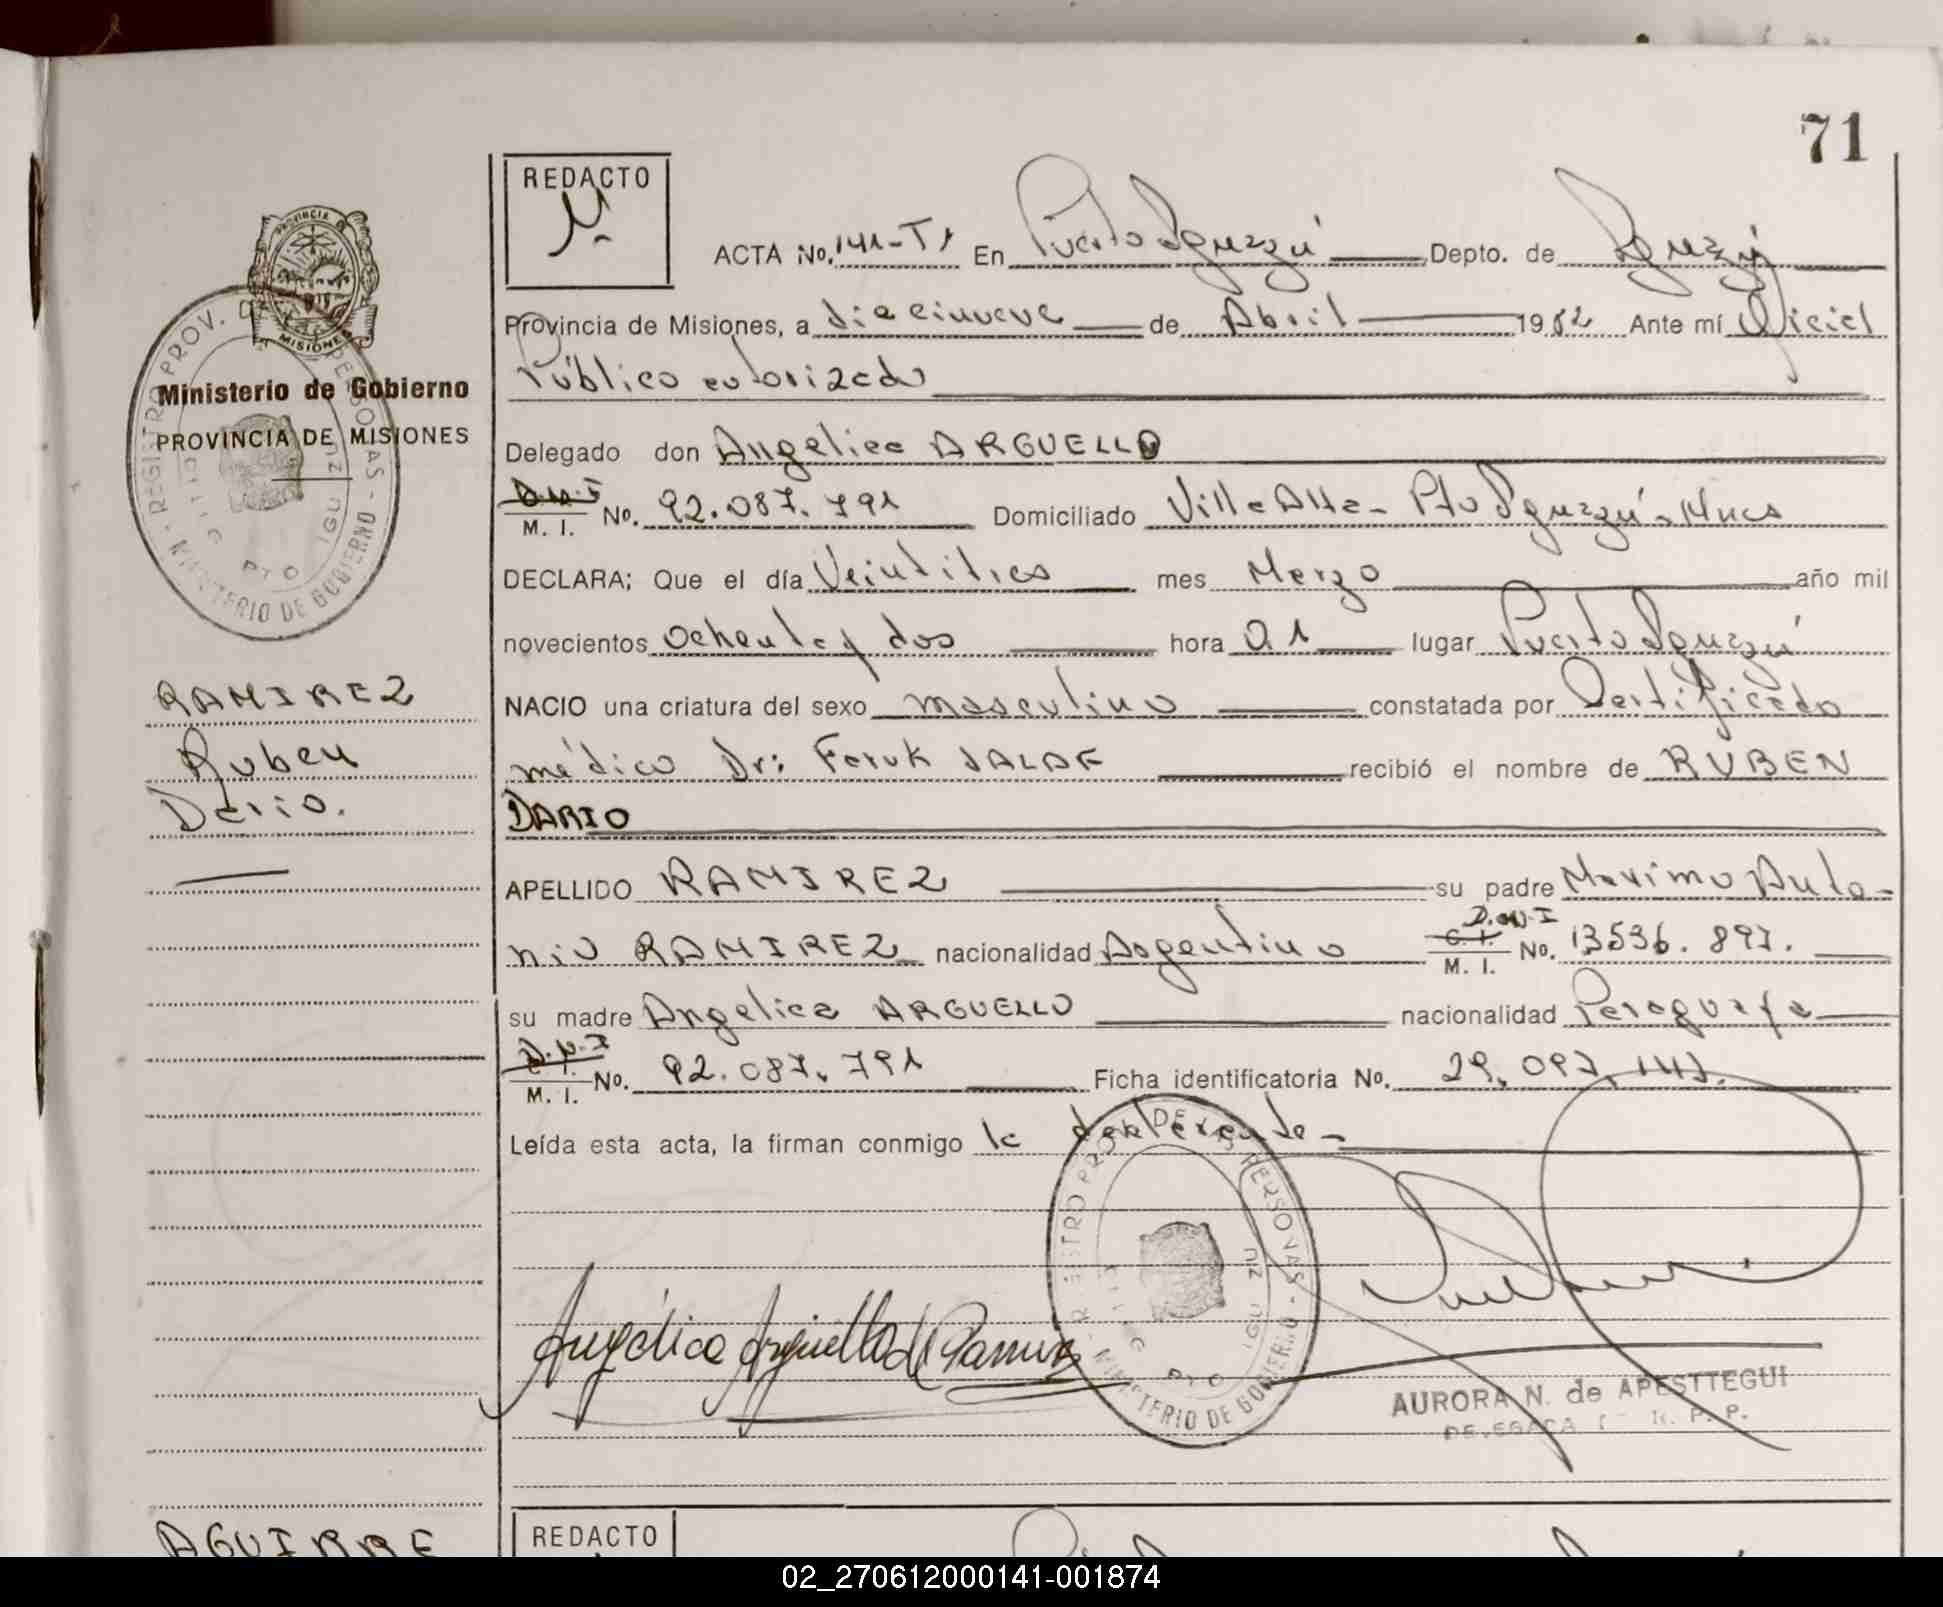 71
REDACTO
ACTA No. 141-T1 En Puerto Iguazú Depto. de Iguazú
Provincia de Misiones, a diecinueve de Abril 1982 Ante mí Oficial
Público autorizado
Ministerio de Gobierno
PROVINCIA DE MISIONES
Delegado don Angelica ARGUELLO
D.N.I M. I. No. 92.087.791 Domiciliado Villa Alta - Pto Iguazú - Mnes
DECLARA; Que el día Veintitres mes Marzo año mil
novecientos ochenta y dos hora 01 lugar Puerto Iguazú
NACIO una criatura del sexo masculino constatada por Certificado
médico Dr: Faruk JALAF recibió el nombre de RUBEN
DARIO
RAMIREZ
Ruben
Dario.
APELLIDO RAMIREZ su padre Maximo Anto-
nio RAMIREZ nacionalidad Argentino D.N.I C. I. M. I. No. 13536.897.
su madre Angelica ARGUELLO nacionalidad Paraguaya
D.N.I C. I. M. I. No. 92.087.791 Ficha identificatoria No. 29.097.147.
Leída esta acta, la firman conmigo la declarante -
Angélica Arguello de Ramirez
REGISTRO PROV. DE LAS PERSONAS - MINISTERIO DE GOBIERNO
PTO IGUAZU
AURORA N. de APESTTEGUI
DELEGADA R. P. P.
AGUIRRE
REDACTO
02_270612000141-001874